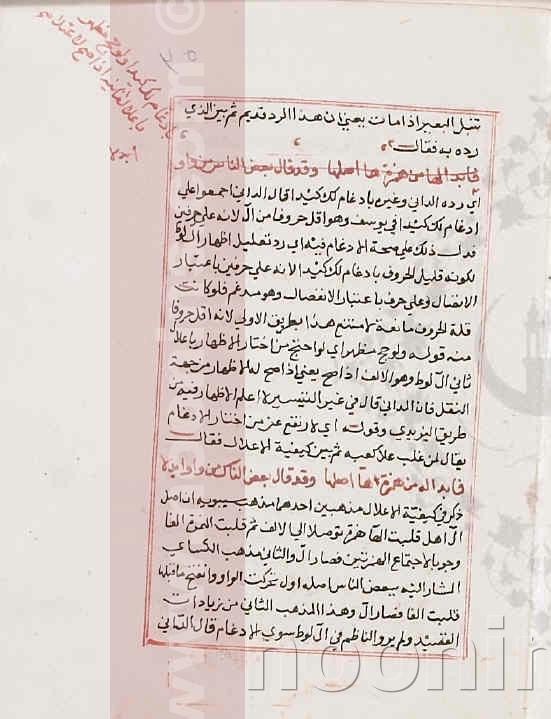 تنبل البعير اذا مات يعني ان هذا الرد قديم ثم بين الذي
رده به فقال
فابداله من همزة هاء اصلها وقد قال بعض الناس من واو
اي رده الداني وغيره بادغام لك كيدا قال الداني اجمعوا علي
ادغام لك كيدا في يوسف وهو اقل حروفا من ال لانه علي حرفين
فدل ذلك علي صحة الادغام فيه اي رد تعليل اظهار ال لوط
لكونه قليل الحروف بادغام لك كيدا لانه علي حرفين باعتبار
الاتصال وعلي حرف باعتبار الانفصال وهو مدغم فلو كانت
قلة الحروف مانعة لامتنع هذا بطريق الاولي لانه اقل حروفا
منه قوله ولو حج مظهر اي لو احتج من اختار الاظهار باعلال
ثاني ال لوط وهو الالف اذا صح يعني اذا صح له الاظهار من جهة
النقل فان الداني قال في غير التيسير لا اعلم الاظهار فيه من
طريق اليزيدي وقوله اي لارتفع عن من اختار الادغام
يقال لمن غلب علا كعبه ثم بين كيفية الاعلال فقال
فابداله من همزة هاء اصلها وقد قال بعض الناس من واو ابدلا
ذكر في كيفية الاعلال مذهبين احدهما مذهب سيبويه ان اصل
ال اهل قلبت الهاء همزة توصلا الي الالف ثم قلبت الهمزة الفا
وجوبا لاجتماع الهمزتين فصار ال والثاني مذهب الكسائي
المشار اليه ببعض الناس اصله اول تحركت الواو وانفتح ما قبلها
قلبت الفا فصار ال وهذا المذهب الثاني من زيادات
القصيد ولم يرو الناظم في ال لوط سوي الادغام قال الداني
بادغام لك كيدا ولو حج مظهر
باعلال ثانيه اذا صح لاعتلا
noonin